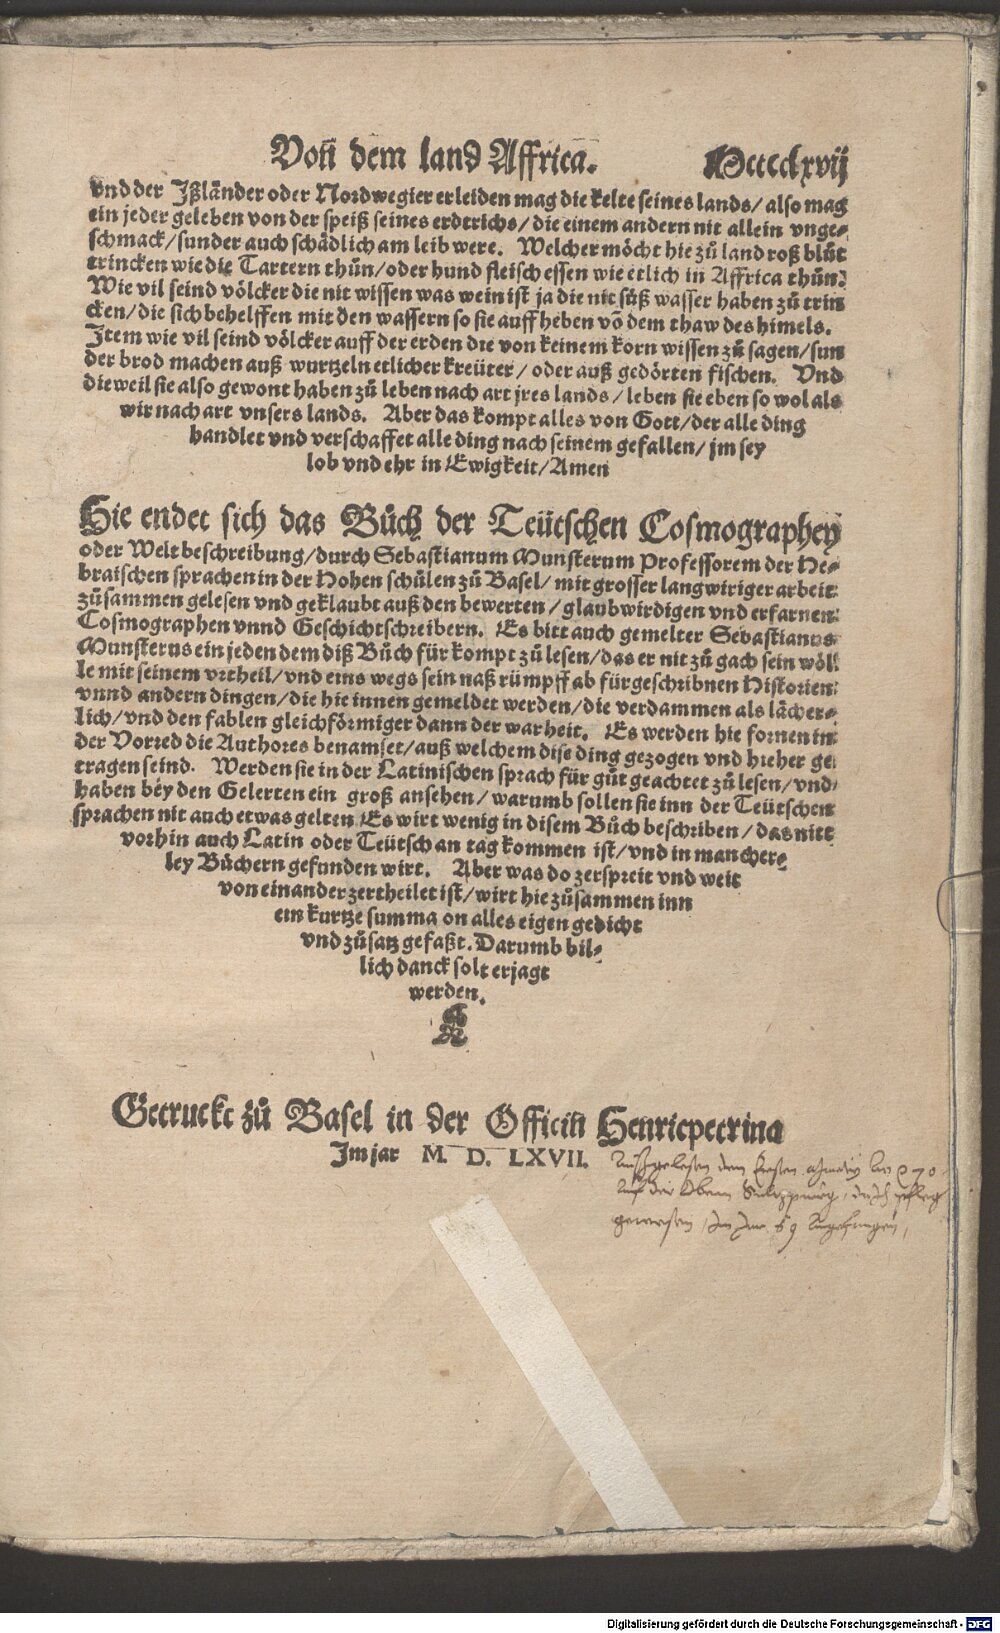 Von dem land Affrica. Mcccclxvij
vnd der Ißländer oder Nordwegier erleiden mag die kelte seines lands/ also mag
ein jeder geleben von der speiß seines erdtrichs/ die einem andern nit allein vnge-
schmack/ sunder auch schädlich am leib were. Welcher möcht hie zů land roß blůt
trincken wie die Tartern thůn/ oder hund fleisch essen wie etlich in Affrica thůn?
Wie vil seind völcker die nit wissen was wein ist ja die nit süß wasser haben zů trin
cken/ die sich behelffen mit den wassern so sie auff heben võ dem thaw des himels.
Item wie vil seind völcker auff der erden die von keinem korn wissen zů sagen/ sun
der brod machen auß wurtzeln etlicher kreüter/ oder auß gedörten fischen. Vnd
dieweil sie also gewont haben zů leben nach art jres lands/ leben sie eben so wol als
wir nach art vnsers lands. Aber das kompt alles von Gott/ der alle ding
handlet vnd verschaffet alle ding nach seinem gefallen/ jm sey
lob vnd ehr in Ewigkeit/ Amen
Hie endet sich das Bůch der Teütschen Cosmographey
oder Weltbeschreibung/ durch Sebastianum Munsterum Professorem der He-
braischen sprachen in der Hohen schůlen zů Basel/ mit grosser langwiriger arbeit
zůsammen gelesen vnd geklaubt auß den bewerten/ glaubwirdigen vnd erfarnen
Cosmographen vnnd Geschichtschreibern. Es bitt auch gemelter Sebastianus
Munsterus ein jeden dem diß Bůch für kompt zů lesen/ das er nit zů gach sein wöl
le mit seinem vrtheil/ vnd eins wegs sein naß rümpff ab fürgeschribnen Historien
vnnd andern dingen/ die hie innen gemeldet werden/ die verdammen als lächer-
lich/ vnd den fablen gleichförmiger dann der warheit. Es werden hie fornen in
der Vorred die Authores benamset/ auß welchem dise ding gezogen vnd hieher ge
tragen seind. Werden sie in der Latinischen sprach für gůt geachtet zů lesen/ vnd
haben bey den Gelerten ein groß ansehen/ warumb sollen sie inn der Teütschen
sprachen nit auch etwas gelten. Es wirt wenig in disem Bůch beschriben/ das nitt
vorhin auch Latin oder Teütsch an tag kommen ist/ vnd in mancher-
ley Büchern gefunden wirt. Aber was do zerspreit vnd weit
von einander zertheilet ist/ wirt hie zůsammen inn
ein kurtze summa on alles eigen gedicht
vnd zůsatz gefaßt. Darumb bil-
lich danck solt erjagt
werden.
Getruckt zů Basel in der Officin Henricpetrina
Im jar M. D. LXVII.
Digitalisierung gefördert durch die Deutsche Forschungsgemeinschaft - DFG